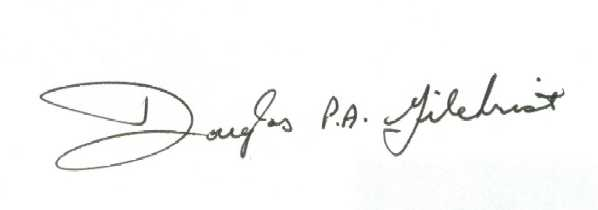 Douglas P.A. Gilchrist